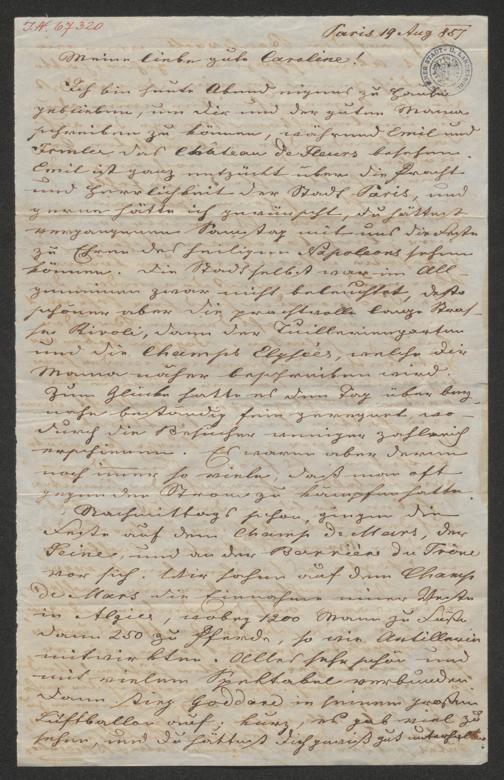 I.N. 67320
Paris 19 Aug 857
Meine liebe gute Caroline!
Ich bin heute Abend eigens zu Hause
geblieben, um dir und der guten Mama
schreiben zu können, während Emil und
das Château de Fleurs besehen.
Emil ist ganz entzückt über die Pracht
und Herrlichkeit der Stadt Paris, und
gerne hätte ich gewünscht, du hättest
vergangenen Samstag mit uns die Feste
zu Ehren des heiligen Napoleons sehen
können. Die Stadt selbst war im All-
gemeinen zwar nicht beleuchtet, desto
schöner aber die prachtvolle lange Stras-
se Rivoli, dann der Tuilleriengarten
und die Champs Elysées, welche dir
Mama näher beschreiben wird.
Zum Glücke hatte es den Tag über bey-
nahe beständig fein geregnet, wo
durch die Besucher weniger zahlreich
erschienen. Es waren aber deren
noch immer so viele, daß man oft
gegen den Strom zu kämpfen hatte.
Nachmittags schon, gingen die
Feste auf dem Champ de Mars, der
Seine, und an der Barrière du Trône
vor sich. Wir sahen auf dem Champ
de Mars die Einnahme einer Veste
in Algier, wobey 1200 Mann zu Fuße
dann 250 zu Pferde, so wie Artillerie
mitwirkten. Alles sehr schön und
mit vielem Spektakel verbunden
Dann stieg Goddard in seinem großen
Luftballon auf; kurz, es gab viel zu
sehen, und du hättest dich gewiß gut unterhalten.